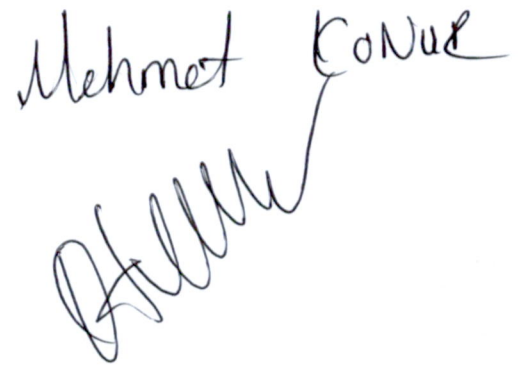 Mehmet KONUR